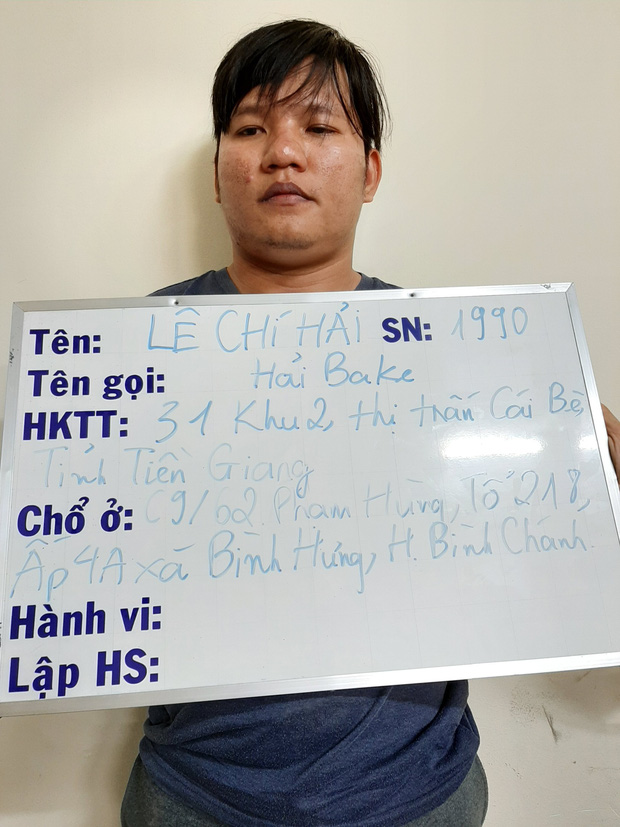 Tên: LÊ CHÍ HẢI SN: 1990
Tên gọi: Hải Bake
HKTT: 31 Khu 2, thị trấn Cái Bè,
Tỉnh Tiền Giang
Chổ ở: C9/62 Phạm Hùng, Tổ 218,
Ấp 4A xã Bình Hưng, H. Bình Chánh.
Hành vi:
Lập HS: